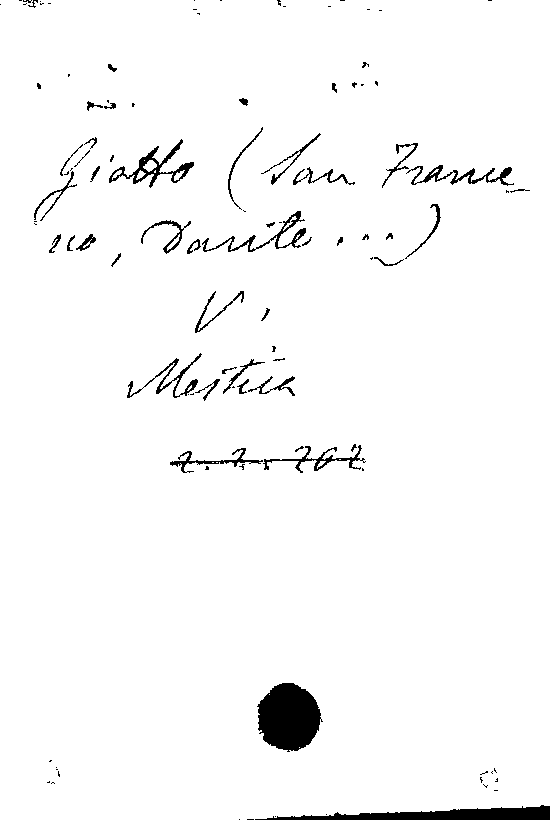 Giotto (San France-
sco, Dante ...)
V.
Mestica
2. 2. 202